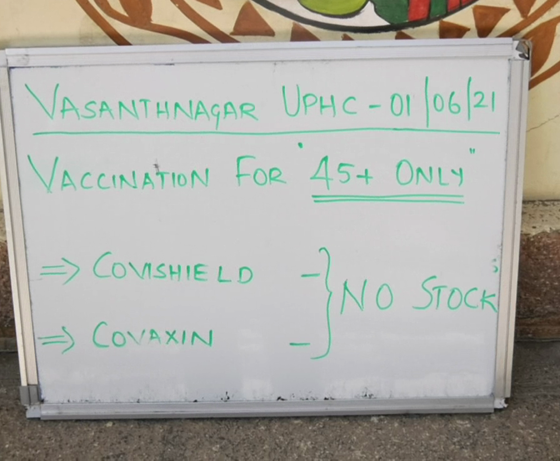 VASANTHNAGAR UPHC - 01/06/21
VACCINATION FOR "45+ ONLY"
⇒ COVISHIELD -
⇒ COVAXIN -
} NO STOCK